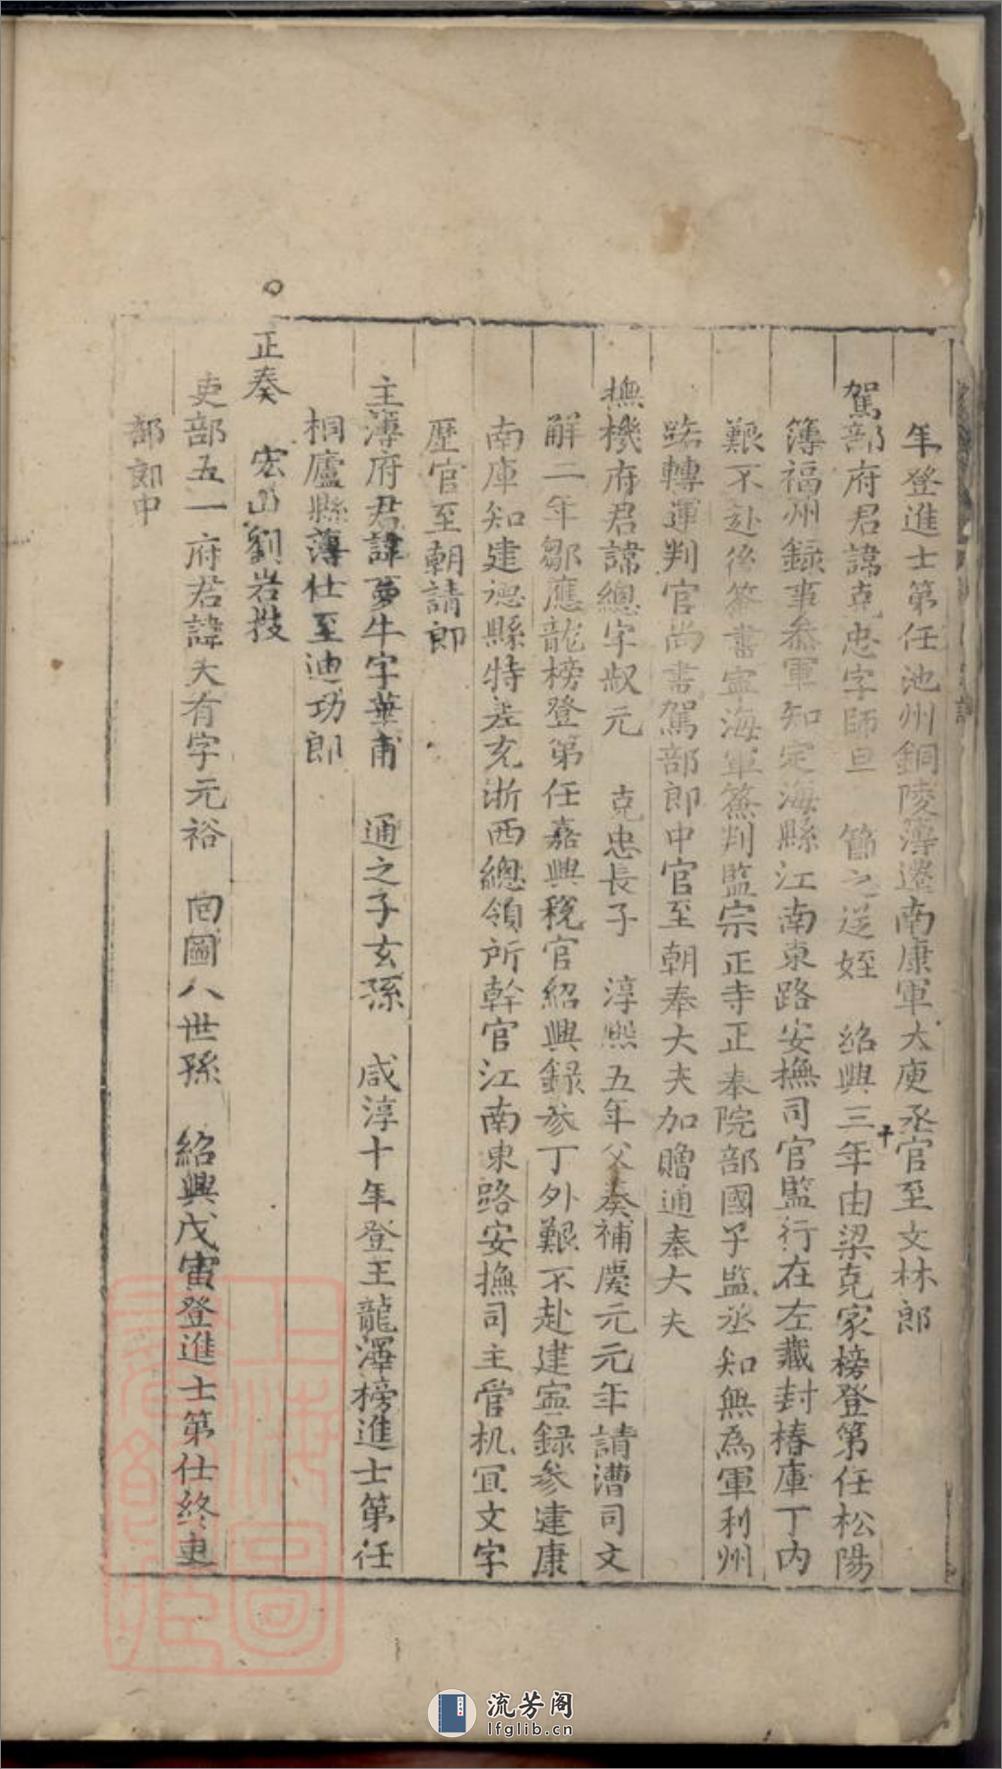 年登進士第任池州銅陵簿遷南康軍大庾丞官至文林郎
駕部府君諱克忠字師旦 節之從姪 紹興三十年由梁克家榜登第任松陽
簿福州録事叅軍知定海縣江南東路安撫司官監行在左藏封樁庫丁内
艱不赴後簽書寧海軍簽判監宗正寺正奏院部國子監丞知無為軍利州
路轉運判官尚書駕部郎中官至朝奉大夫加贈通奉大夫
撫機府君諱總字叔元 克忠長子 淳熙五年父奏補慶元元年請漕司文
解二年鄒應龍榜登第任嘉興稅官紹興録叅丁外艱不赴建寧録參建康
南庫知建德縣特差充浙西總領所幹官江南東路安撫司主管机宜文字
歷官至朝請郎
主簿府君諱夢牛字華甫 通之子玄孫 咸淳十年登王龍澤榜進士第任
桐廬縣薄仕至迪功郎
正奏 宏山劉岩技
吏部五一府君諱大有字元裕 囘圖八世孫 紹興戊寅登進士第仕終吏
部郎中
上海圖書館藏
流芳阁
lfglib.cn